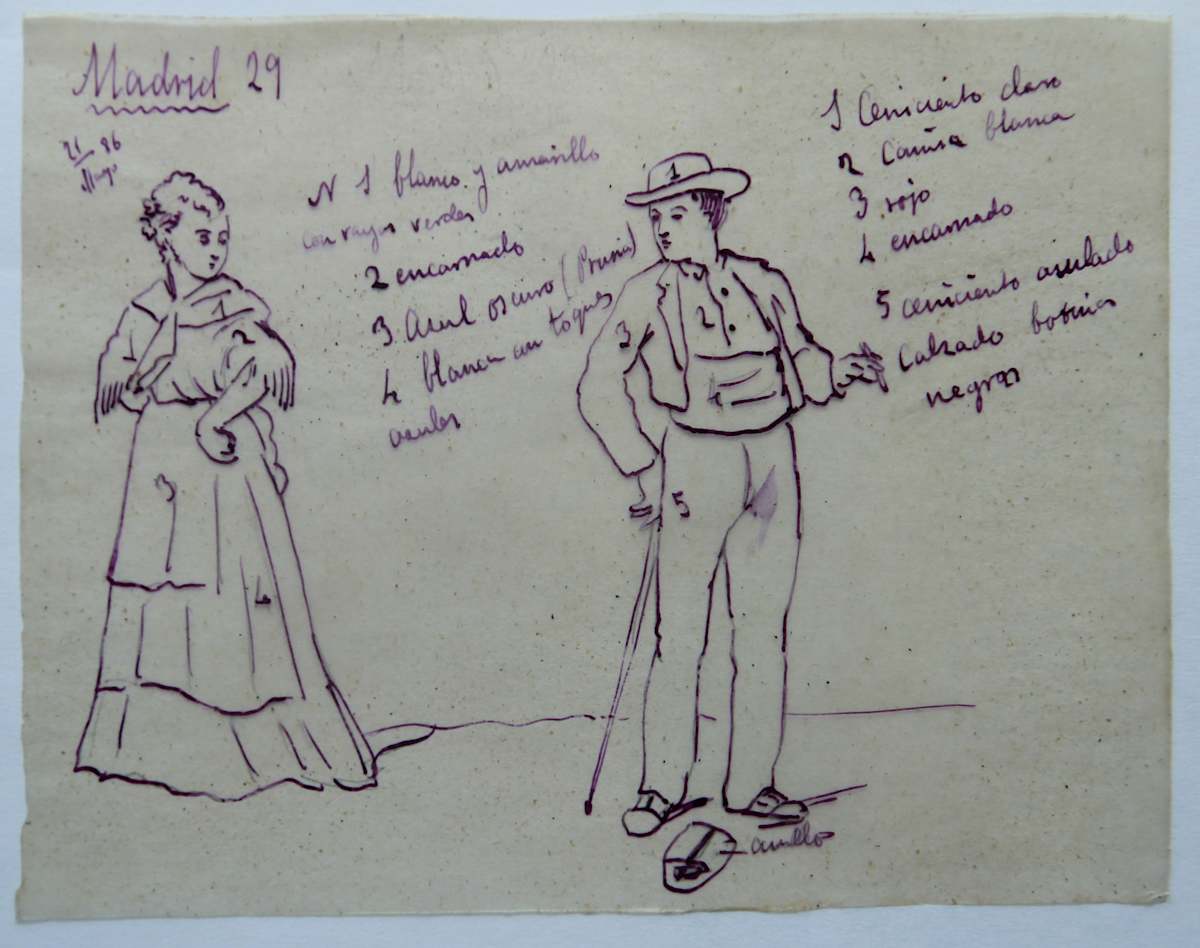 Madrid 29
21 86
Mayo
N 1 blanco y amarillo
con rayas verdes
2 encarnado
3 Azul oscuro (Prusia)
4 blanca con toques
azules
1 Ceniciento claro
2 Camisa blanca
3 rojo
4 encarnado
5 ceniciento azulado
Calzado botinas
negras
1
2
3
4
1
2
3
4
5